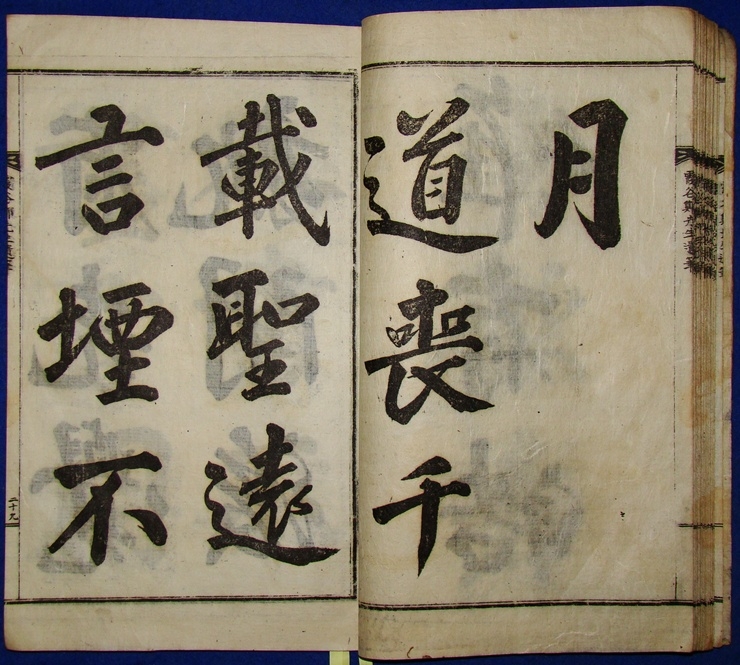 月
道喪千
載聖遠
言堙不
二十九